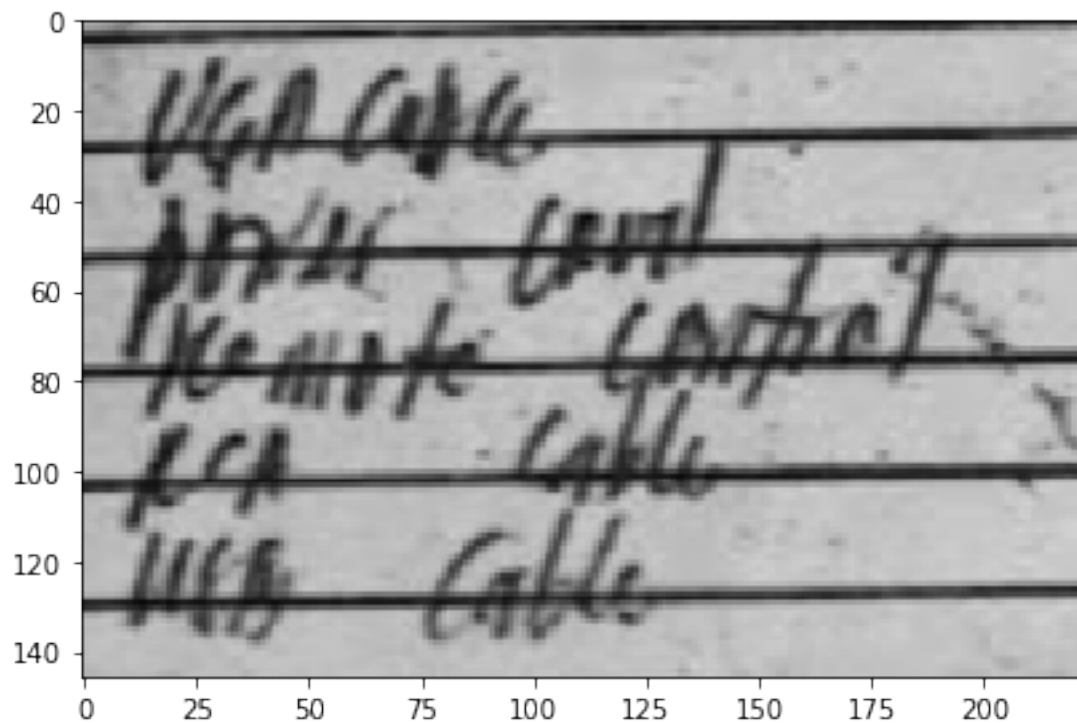 0
20
40
60
80
100
120
140
VGA Cable
Remote
RCA Cable
USB Cable
0 25 50 75 100 125 150 175 200